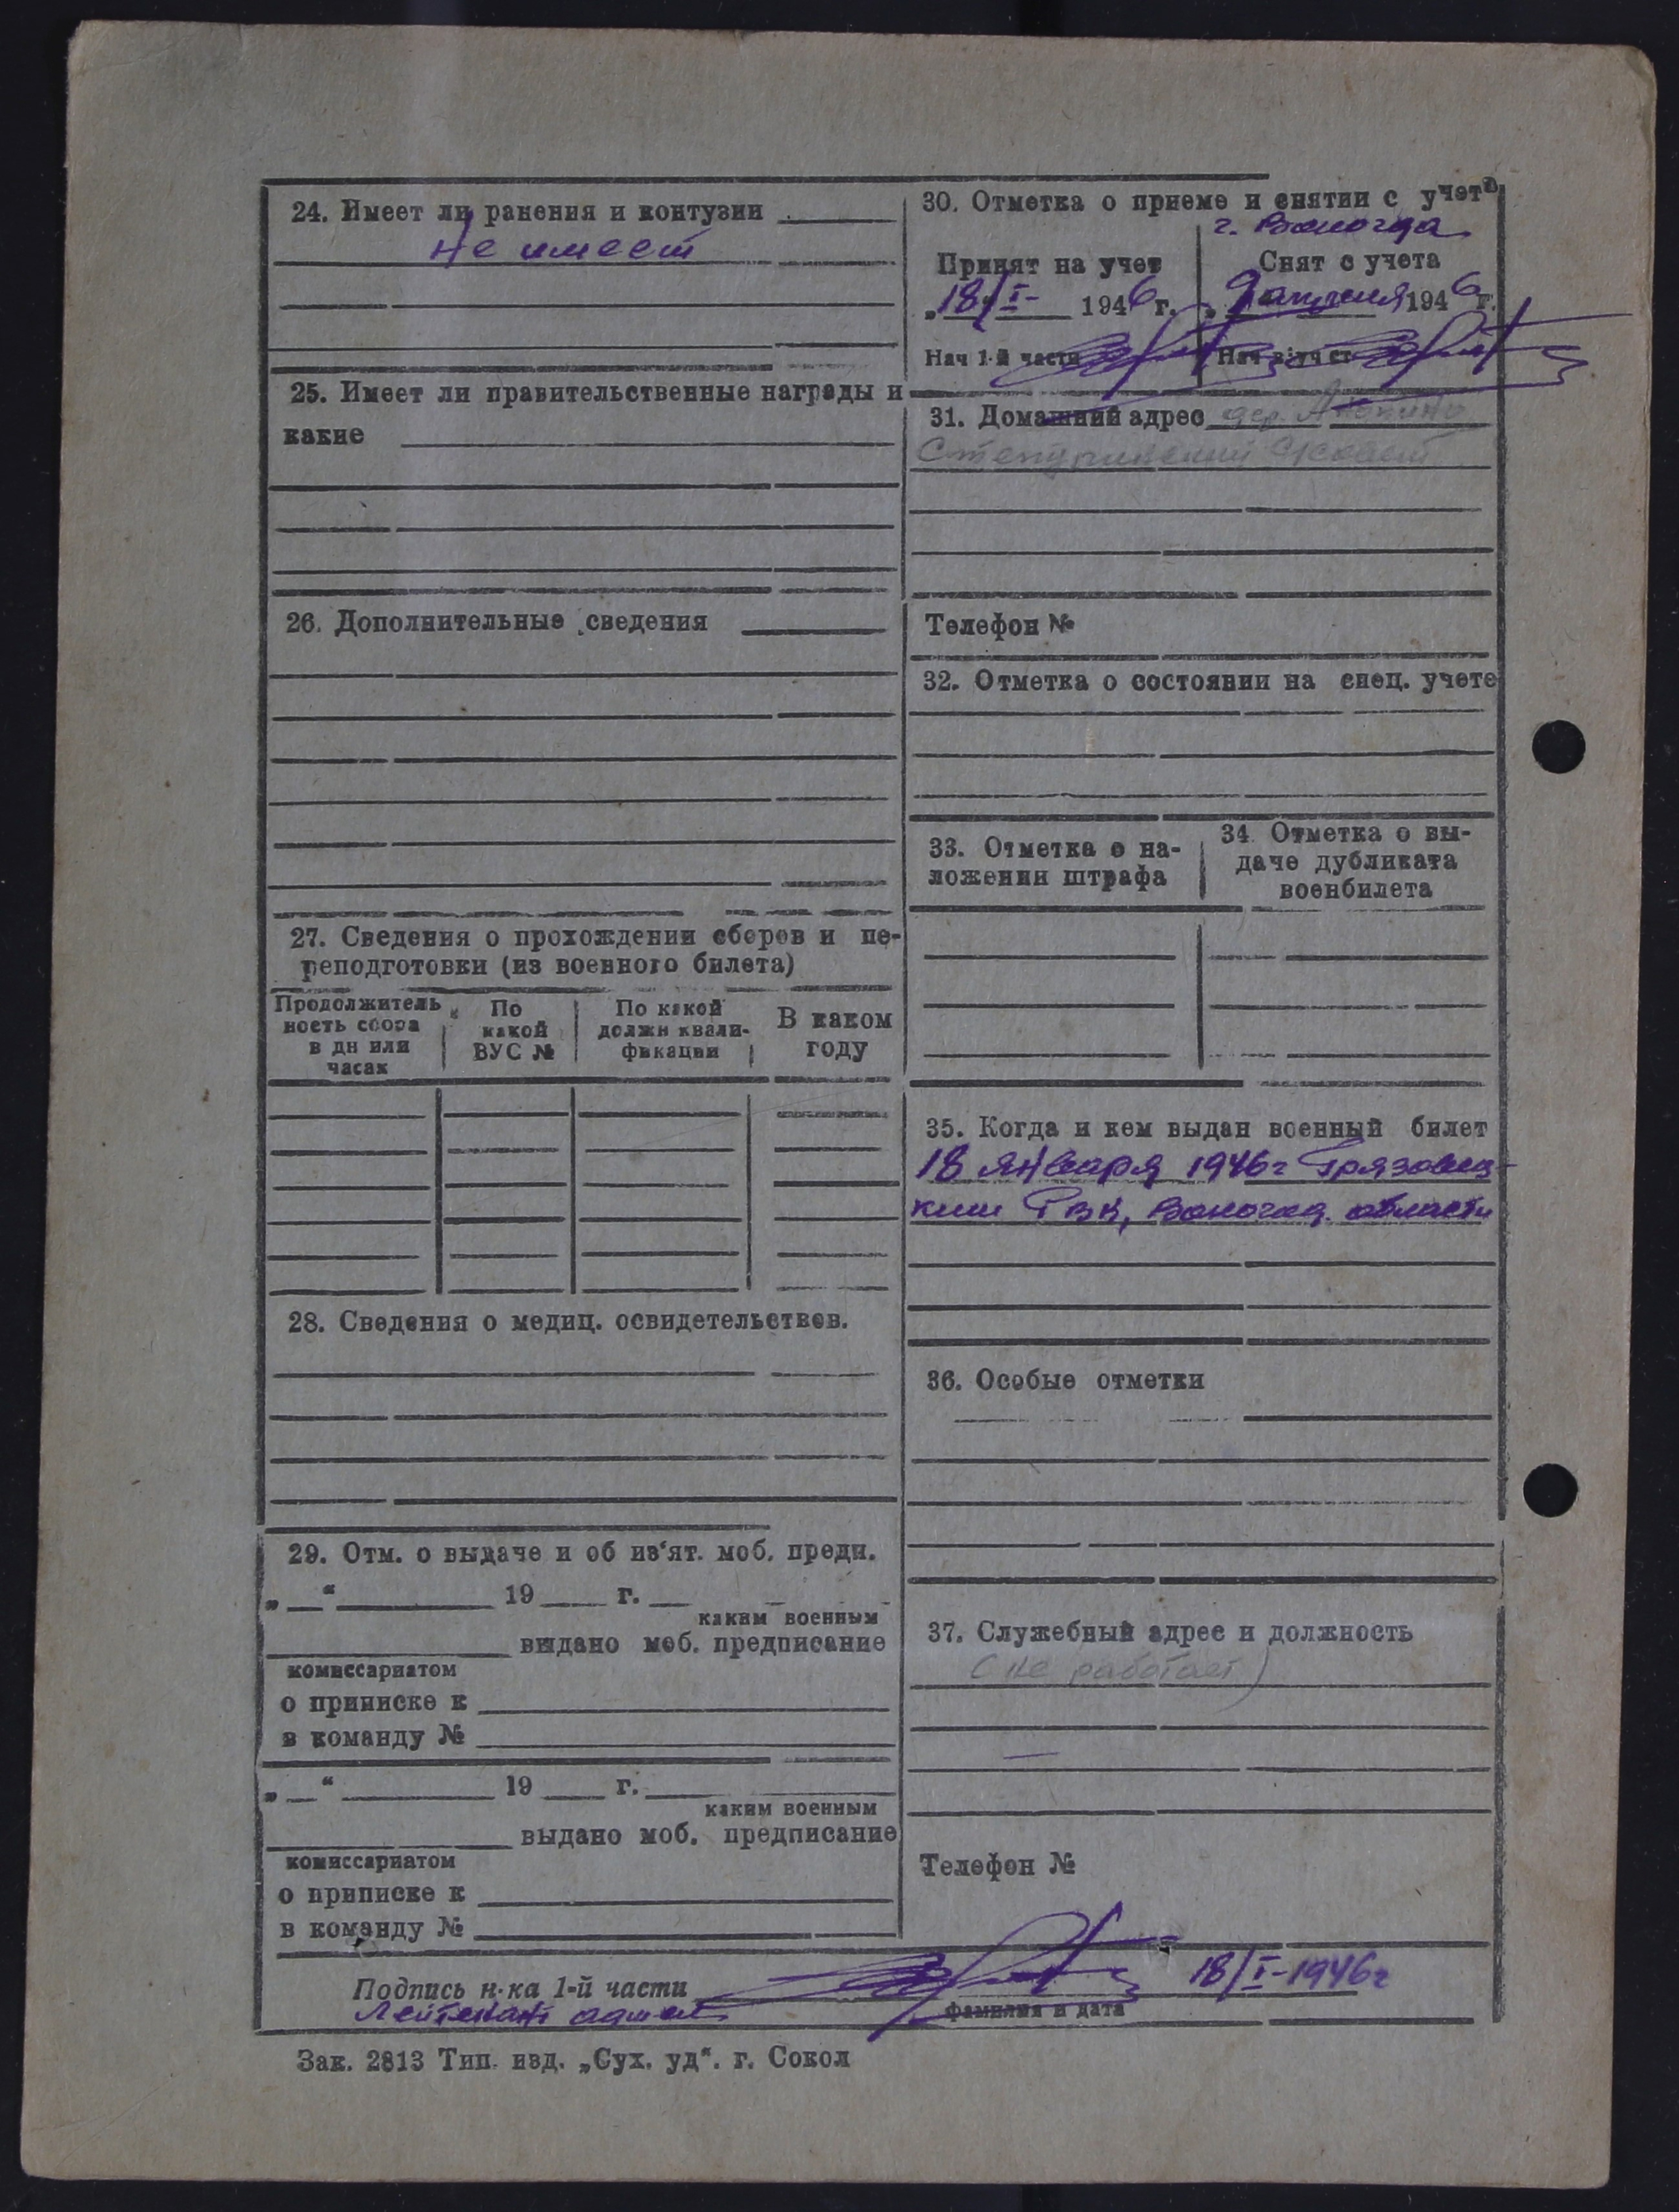 24. Имеет ли ранения и контузии
не имеет
25. Имеет ли правительственные награды и
какие
26. Дополнительные сведения
27. Сведения о прохождении сборов и пе-
реподготовки (из военного билета)
Продолжитель
ность сбора
в дн или
часах
По
какой
ВУС №
По какой
должн квали-
фикации
В каком
году
28. Сведения о медиц. освидетельствов.
29. Отм. о выдаче и об из‘ят. моб. предн.
„ “ 19 г.
каким военным
выдано моб. предписание
комиссариатом
о приписке к
в команду №
„ “ 19 г.
каким военным
выдано моб. предписание
комиссариатом
о приписке к
в команду №
30. Отметка о приеме и снятии с учета
г. Вологда
Принят на учет
„18/I- 1946 г.
Нач 1-й части
Снят с учета
„9 апреля 1946 г.
Нач
31. Домашний адрес дер.
Телефон №
32. Отметка о состоянии на спец. учете
33. Отметка о на-
ложении штрафа
34. Отметка о вы-
даче дубликата
военбилета
35. Когда и кем выдан военный билет
18 января 1946г Грязовец-
ким РВК, Вологод. области
36. Особые отметки
37. Служебный адрес и должность
(не работает)
Телефон №
Подпись н-ка 1-й части
18/I-1946г
Лейтенант
фамилия и дата
Зак. 2813 Тип. изд. „Сух. уд“. г. Сокол